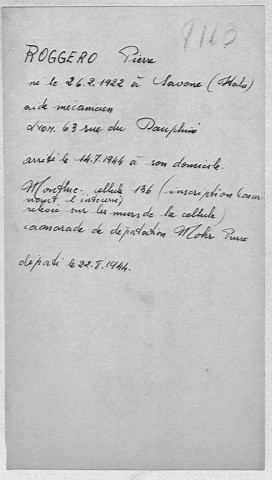 8163
ROGGERO Pierre
né le 26.2.1922 à Savone (Italie)
aide mécanicien
Lyon. 63 rue du Dauphiné
arrêté le 14.7.1944 à son domicile.
Montluc. cellule 136 (inscription concer
nant l'interné)
relevée sur les murs de la cellule)
camarade de déportation Mohr Pierre
déporté le 22.8.1944.